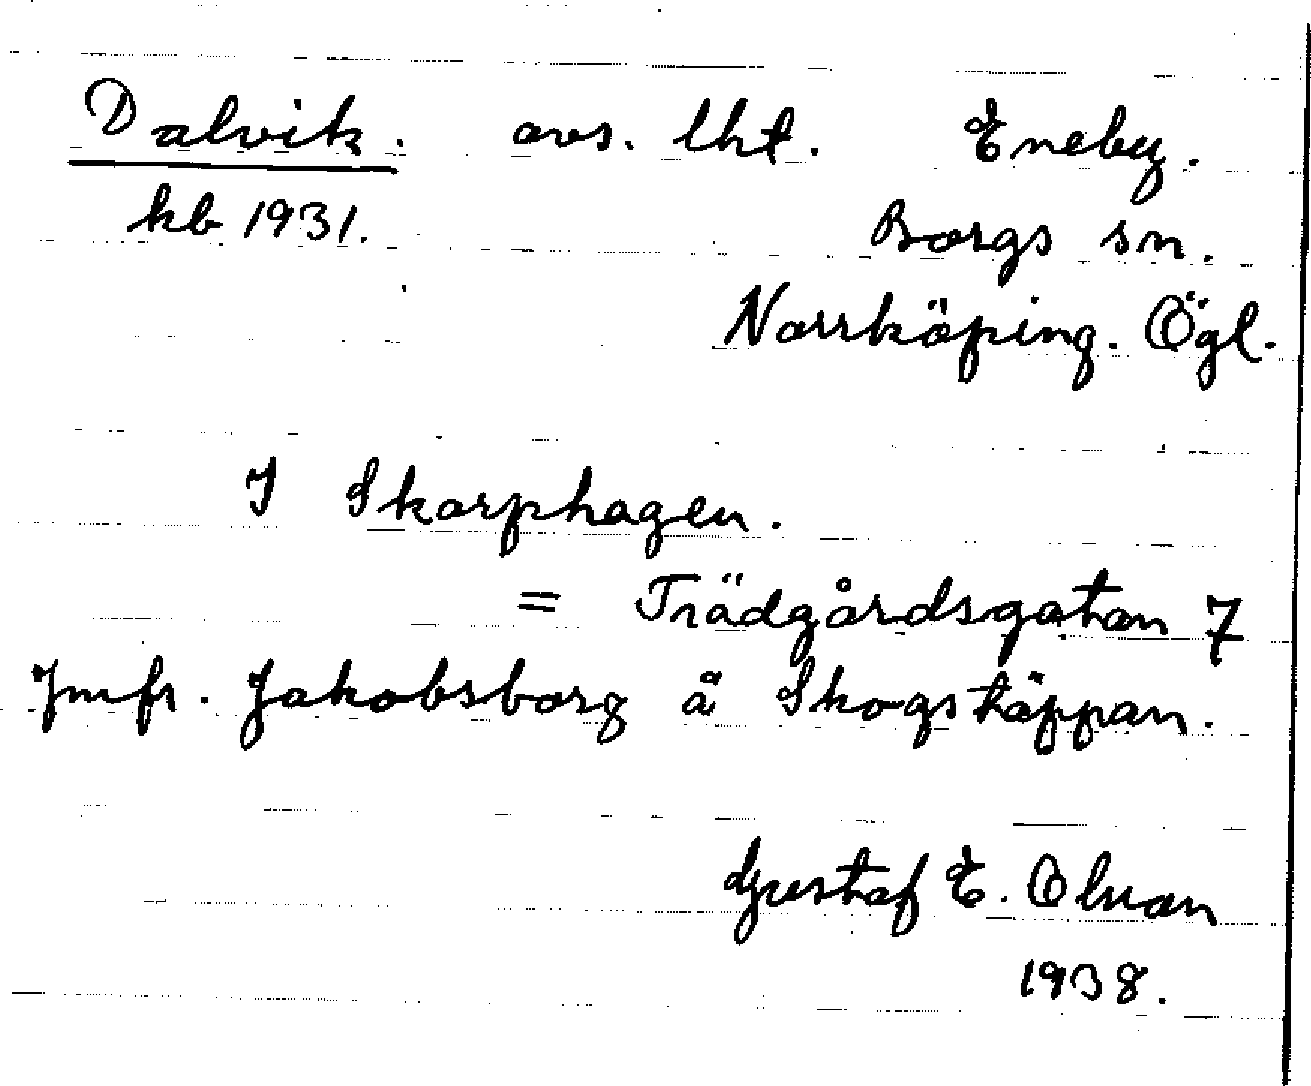 Dalvik. avs. lht. Eneby.
kb 1931. Borgs sn.
Norrköping. Ögl.
I Skarphagen.
= Trädgårdsgatan 7
Jmfr. Jakobsborg å Skogstäppan.
Gustaf E. Olson
1938.